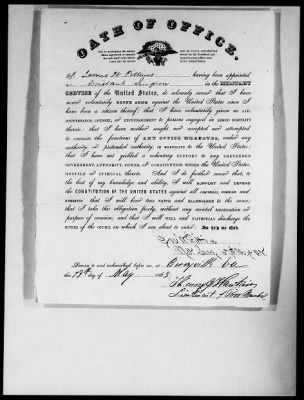 OATH OF OFFICE.
I, James H. having been appointed
Assistant Surgeon in the MILITARY
SERVICE of the United States, do solemnly swear that I have
never voluntarily BORNE ARMS against the United States since I
have been a citizen thereof; that I have voluntarily given NO AID,
COUNTENANCE, COUNSEL, or ENCOURAGEMENT to persons engaged in ARMED HOSTILITY
thereto; that I have neither sought nor accepted nor attempted
to exercise the functions of ANY OFFICE WHATEVER, under any
authority, or pretended authority, IN HOSTILITY to the United States;
that I have not yielded a voluntary SUPPORT to any PRETENDED
GOVERNMENT, AUTHORITY, POWER, or CONSTITUTION within the United States,
HOSTILE or INIMICAL thereto. And I do further swear that, to
the best of my knowledge and ability, I will SUPPORT and DEFEND
the CONSTITUTION OF THE UNITED STATES against all enemies, FOREIGN and
DOMESTIC; that I will bear true FAITH and ALLEGIANCE to the same;
that I take this obligation freely, without any mental reservation or
purpose of evasion; and that I will WELL and FAITHFULLY discharge the
DUTIES of the OFFICE on which I am about to enter. So help me God.
Sworn to and subscribed before me, at
this 19th day of May 1863
Henry
Lieutenant &